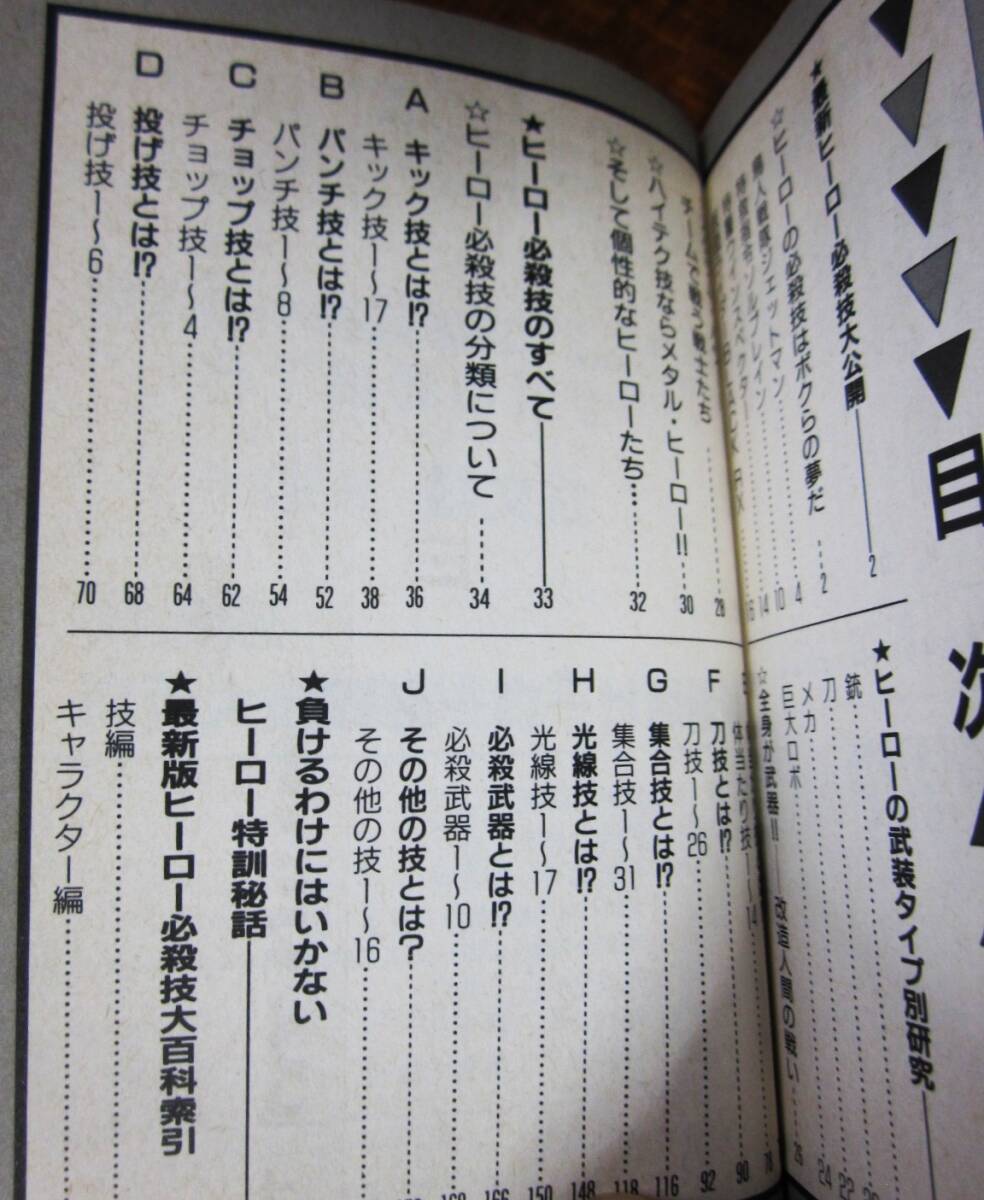 目次
★最新ヒーロー必殺技大公開 2
☆ヒーローの必殺技はボクらの夢だ 2
鳥人戦隊ジェットマン 4
特救指令ソルブレイン 10
14
16
チームで戦う戦士たち 28
☆ハイテク技ならメタル・ヒーロー!! 30
☆そして個性的なヒーローたち 32
★ヒーロー必殺技のすべて 33
☆ヒーロー必殺技の分類について 34
A キック技とは!? 36
キック技1〜17 38
B パンチ技とは!? 52
パンチ技1〜8 54
C チョップ技とは!? 62
チョップ技1〜4 64
D 投げ技とは!? 68
投げ技1〜6 70
★ヒーローの武装タイプ別研究
銃
刀 22
メカ 24
巨大ロボ 25
☆全身が武器!!——改造人間の戦い
体当たり技1〜14 90
F 刀技とは!? 92
刀技1〜26
G 集合技とは!? 116
集合技1〜31 118
H 光線技とは!? 148
光線技1〜17 150
I 必殺武器とは!? 166
必殺武器1〜10
J その他の技とは?
その他の技1〜16
★負けるわけにはいかない
ヒーロー特訓秘話
★最新版ヒーロー必殺技大百科索引
技編
キャラクター編